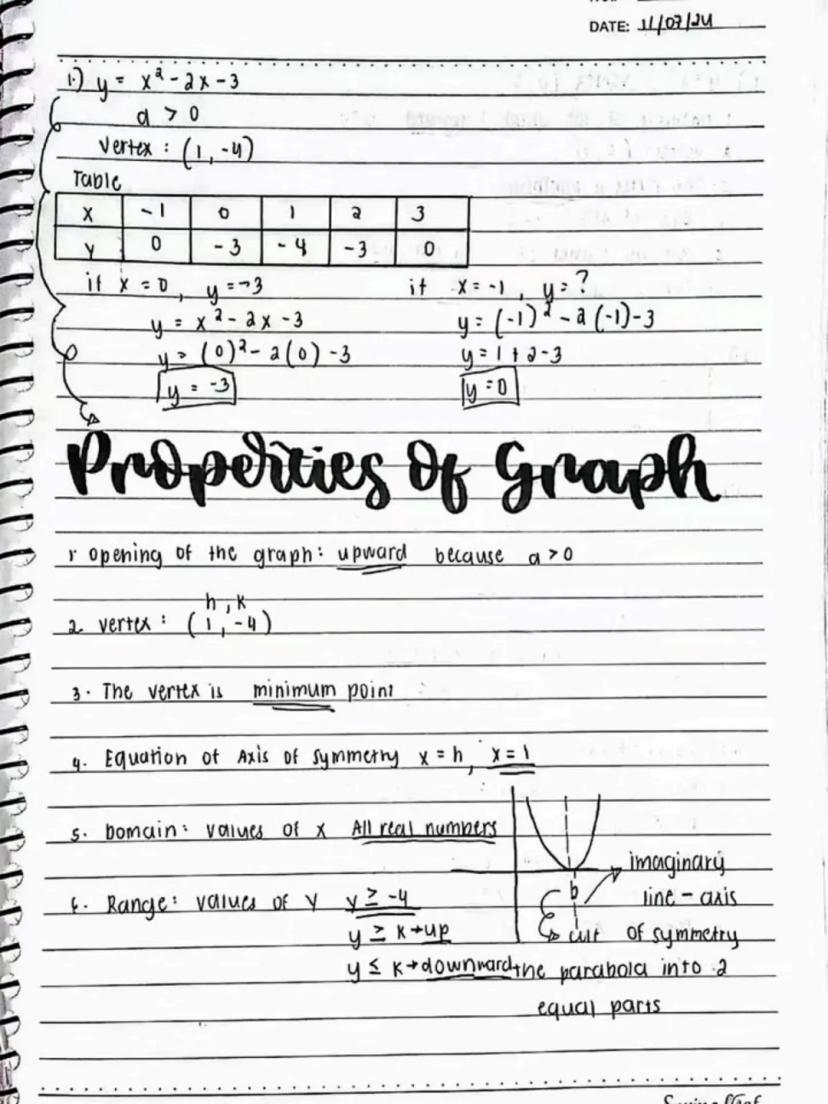 DATE: 11/07/24
1.) y = x² - 2x - 3
a > 0
Vertex : (1, -4)
Table
X -1 0 1 2 3
Y 0 -3 -4 -3 0
if x = 0, y = -3
if x = -1, y = ?
y = x² - 2x - 3
y = (-1)² - 2(-1) - 3
y = (0)² - 2(0) - 3
y = 1 + 2 - 3
y = -3
y = 0
Properties of Graph
1. opening of the graph: upward because a > 0
h, k
2. vertex : (1, -4)
3. The vertex is minimum point
4. Equation of Axis of symmetry x = h, x = 1
5. Domain: values of x All real numbers
6. Range: values of y y ≥ -4
y ≥ k → up
y ≤ k → downward
imaginary
line - axis
of symmetry
cut
the parabola into 2
equal parts